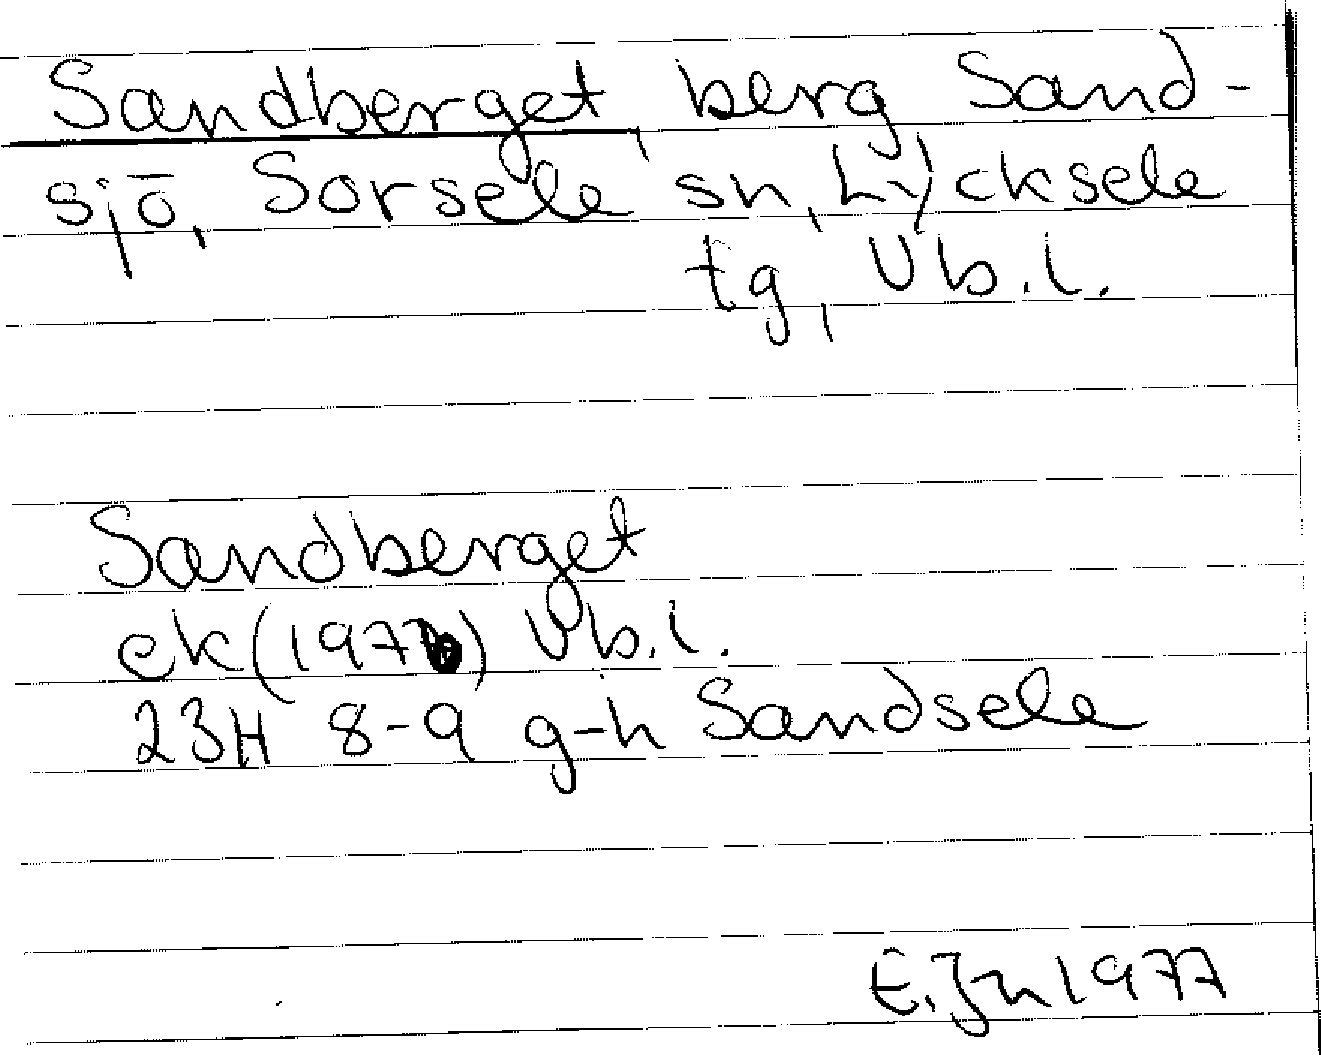 Sandberget, berg Sand-
sjö, Sorsele sn, Lycksele
tg, Vb.l.
Sandberget
ek (1976) Vb.l.
23H 8-9 g-h Sandsele
E. Jn 1977